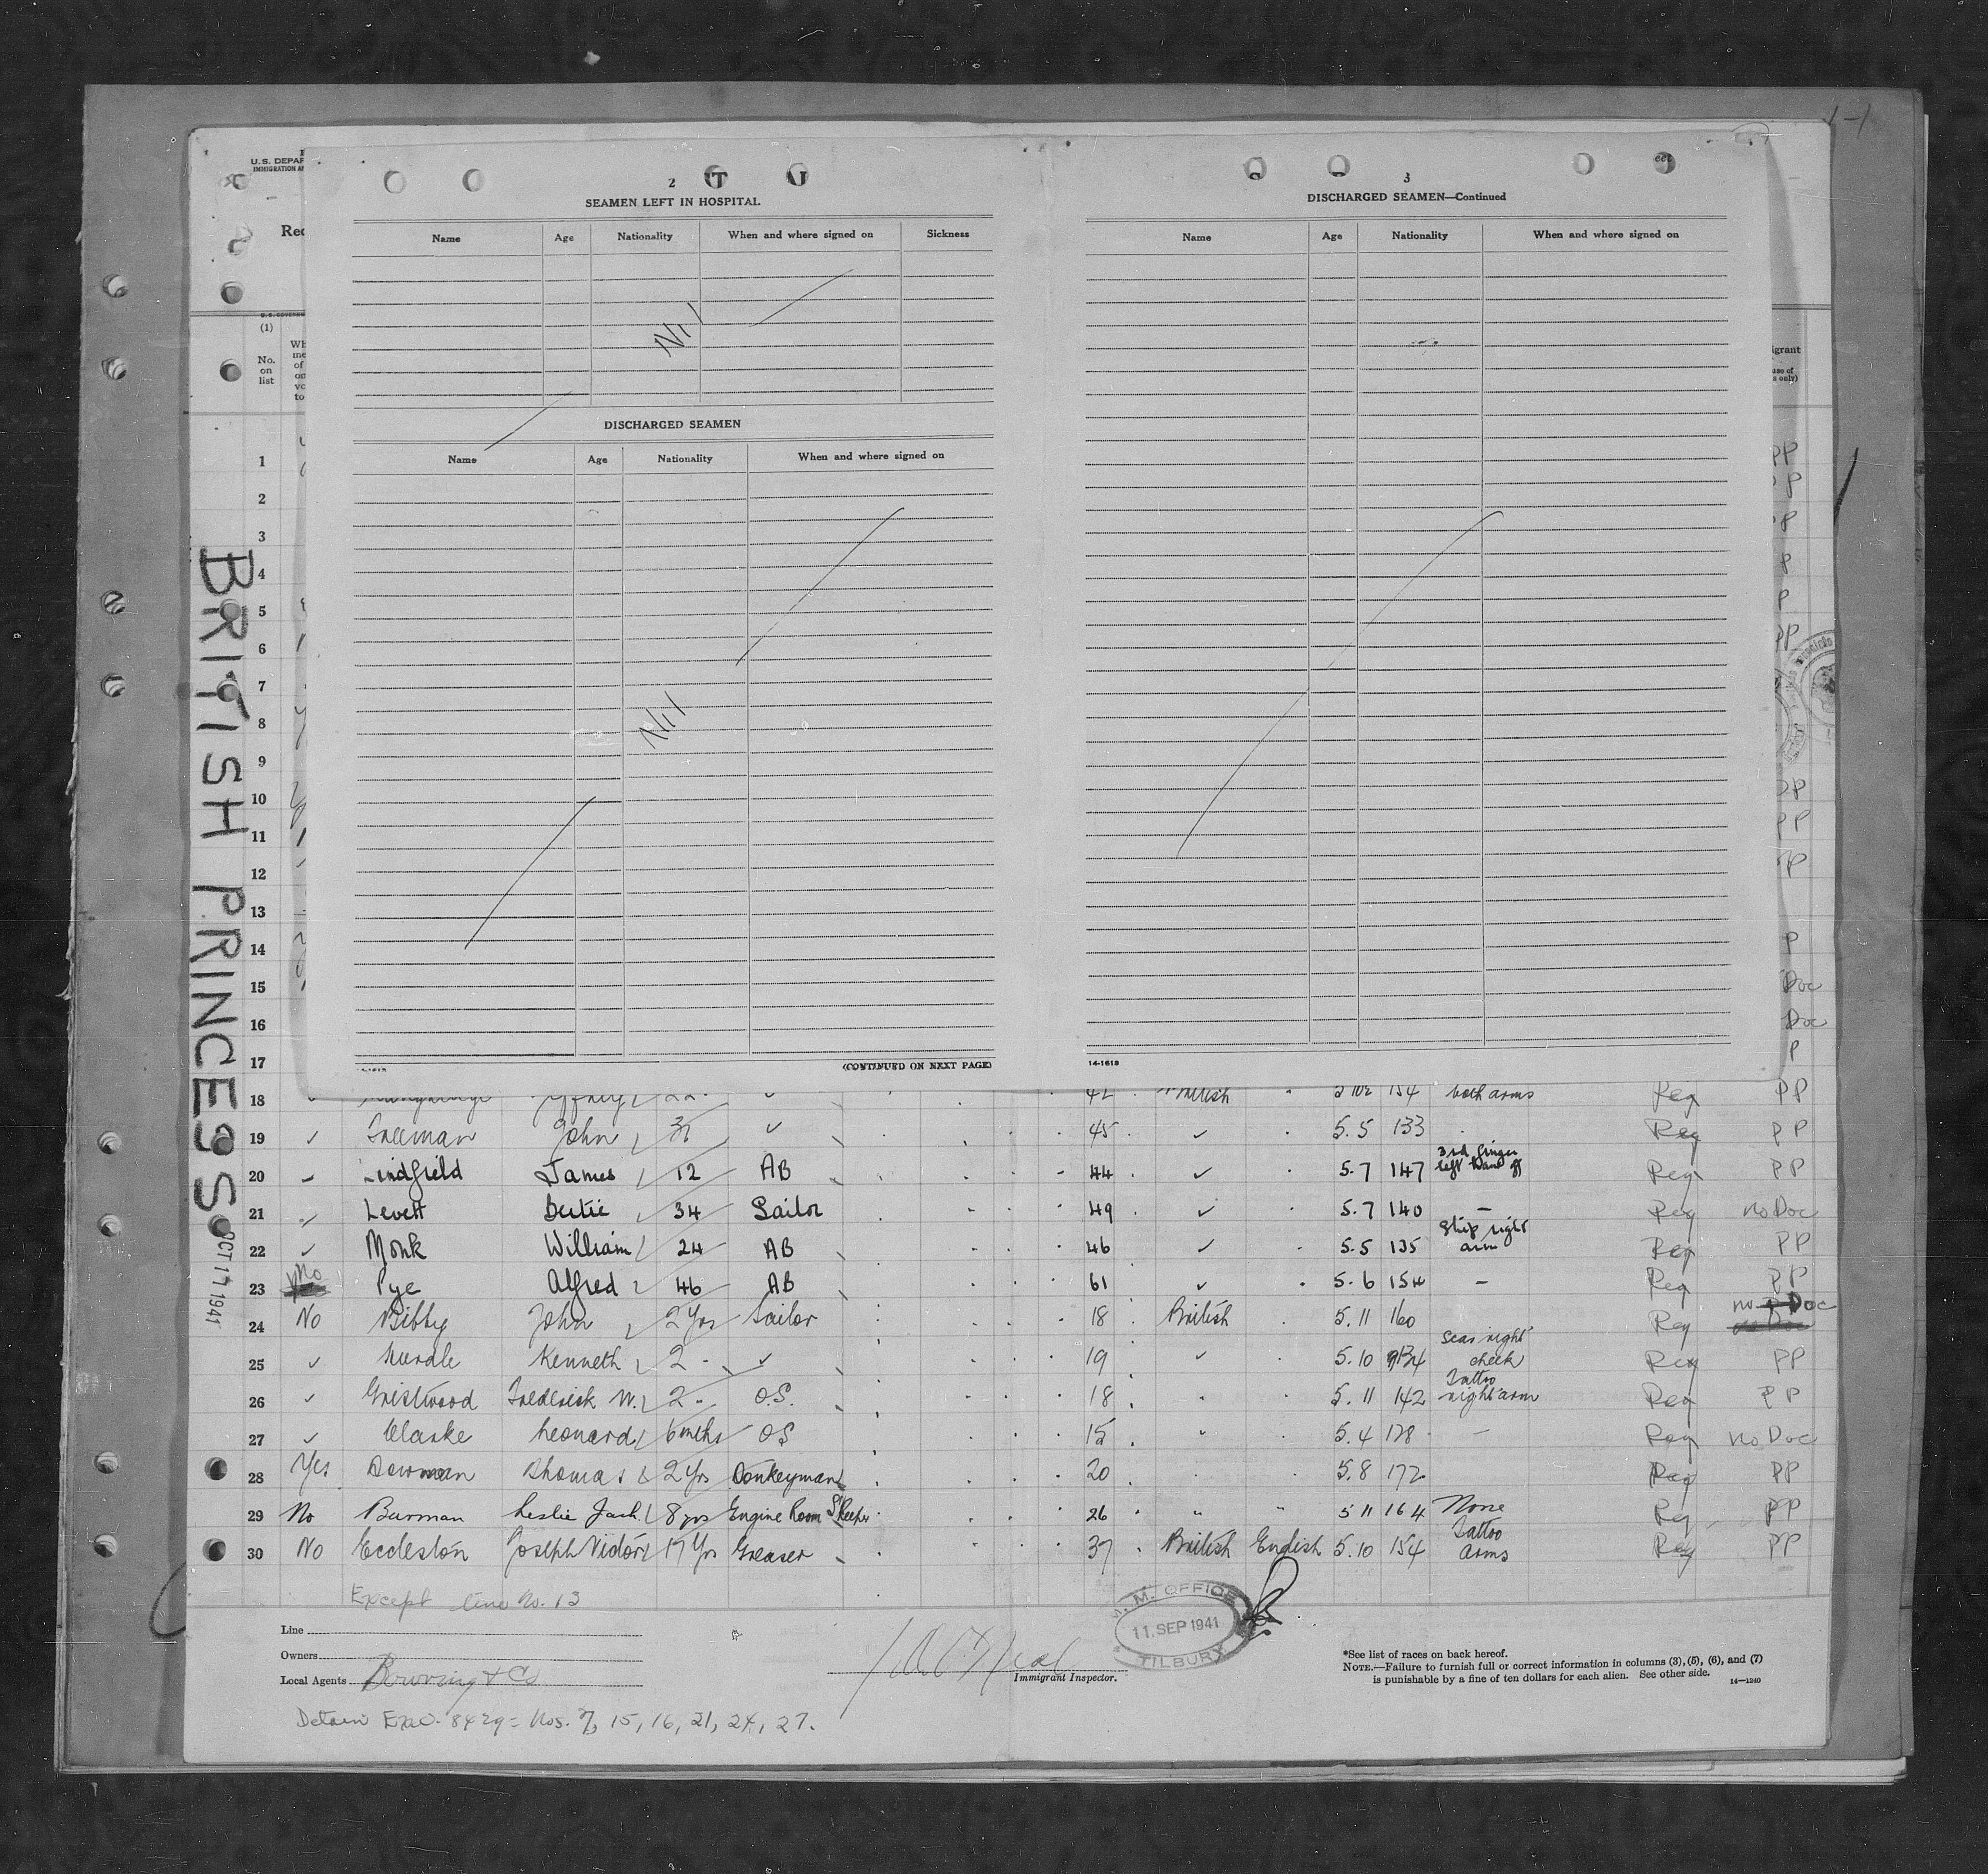 U.S. DEPAR
IMMIGRATION A
Rec
(1)
No. on list
2
SEAMEN LEFT IN HOSPITAL
Name Age Nationality When and where signed on Sickness
Nil
DISCHARGED SEAMEN
Name Age Nationality When and where signed on
Nil
(CONTINUED ON NEXT PAGE)
3
DISCHARGED SEAMEN—Continued
Name Age Nationality When and where signed on
14-1618
BRITISH PRINCESS
OCT 17 1941
1 PP
2
3
4
5
6 PP
7
8
9
10 PP
11 PP
12
13
14 P
15 Doc
16 Doc
17 P
18 42 British 154 both arms Reg PP
19 ✓ Freeman John ✓ 45 ✓ 5.5 133 Reg PP
20 Lindfield James 12 AB 44 ✓ 5.7 147 3rd finger left hand off Reg PP
21 Levett Bertie 34 Sailor 49 ✓ 5.7 140 — Reg no Doc
22 ✓ Monk William 24 AB 46 ✓ 5.5 135 Ship right arm Reg PP
23 No Pye Alfred 46 AB 61 ✓ 5.6 154 — Reg PP
24 No Bibby John 2 Yrs Sailor 18 British 5.11 160 Reg no Doc
25 ✓ Kenneth 2 " ✓ 19 " 5.10 scar right cheek Reg PP
26 ✓ Gristwood Frederick W. 2 " O.S. 18 " 5.11 142 Tattoo right arm Reg PP
27 ✓ Clarke Leonard 6 mths OS 15 " 5.4 128 — Reg no Doc
28 Yes Bowman Thomas 2 Yrs Donkeyman 20 5.8 172 Reg PP
29 No Burman Leslie Jack 8 yrs Engine Room S/Keeper 26 " " 5 11 164 None Reg PP
30 No Eccleston Joseph Victor 17 Yrs Greaser 37 British English 5.10 154 Tattoo arms Reg PP
Except line No. 13
Line
Owners
Local Agents Bowring & Co
Immigrant Inspector.
M.M. OFFICE
11. SEP 1941
TILBURY
*See list of races on back hereof.
NOTE.—Failure to furnish full or correct information in columns (3), (5), (6), and (7)
is punishable by a fine of ten dollars for each alien. See other side.
14—1240
Detain Exec. 8429 = Nos. 7, 15, 16, 21, 24, 27.